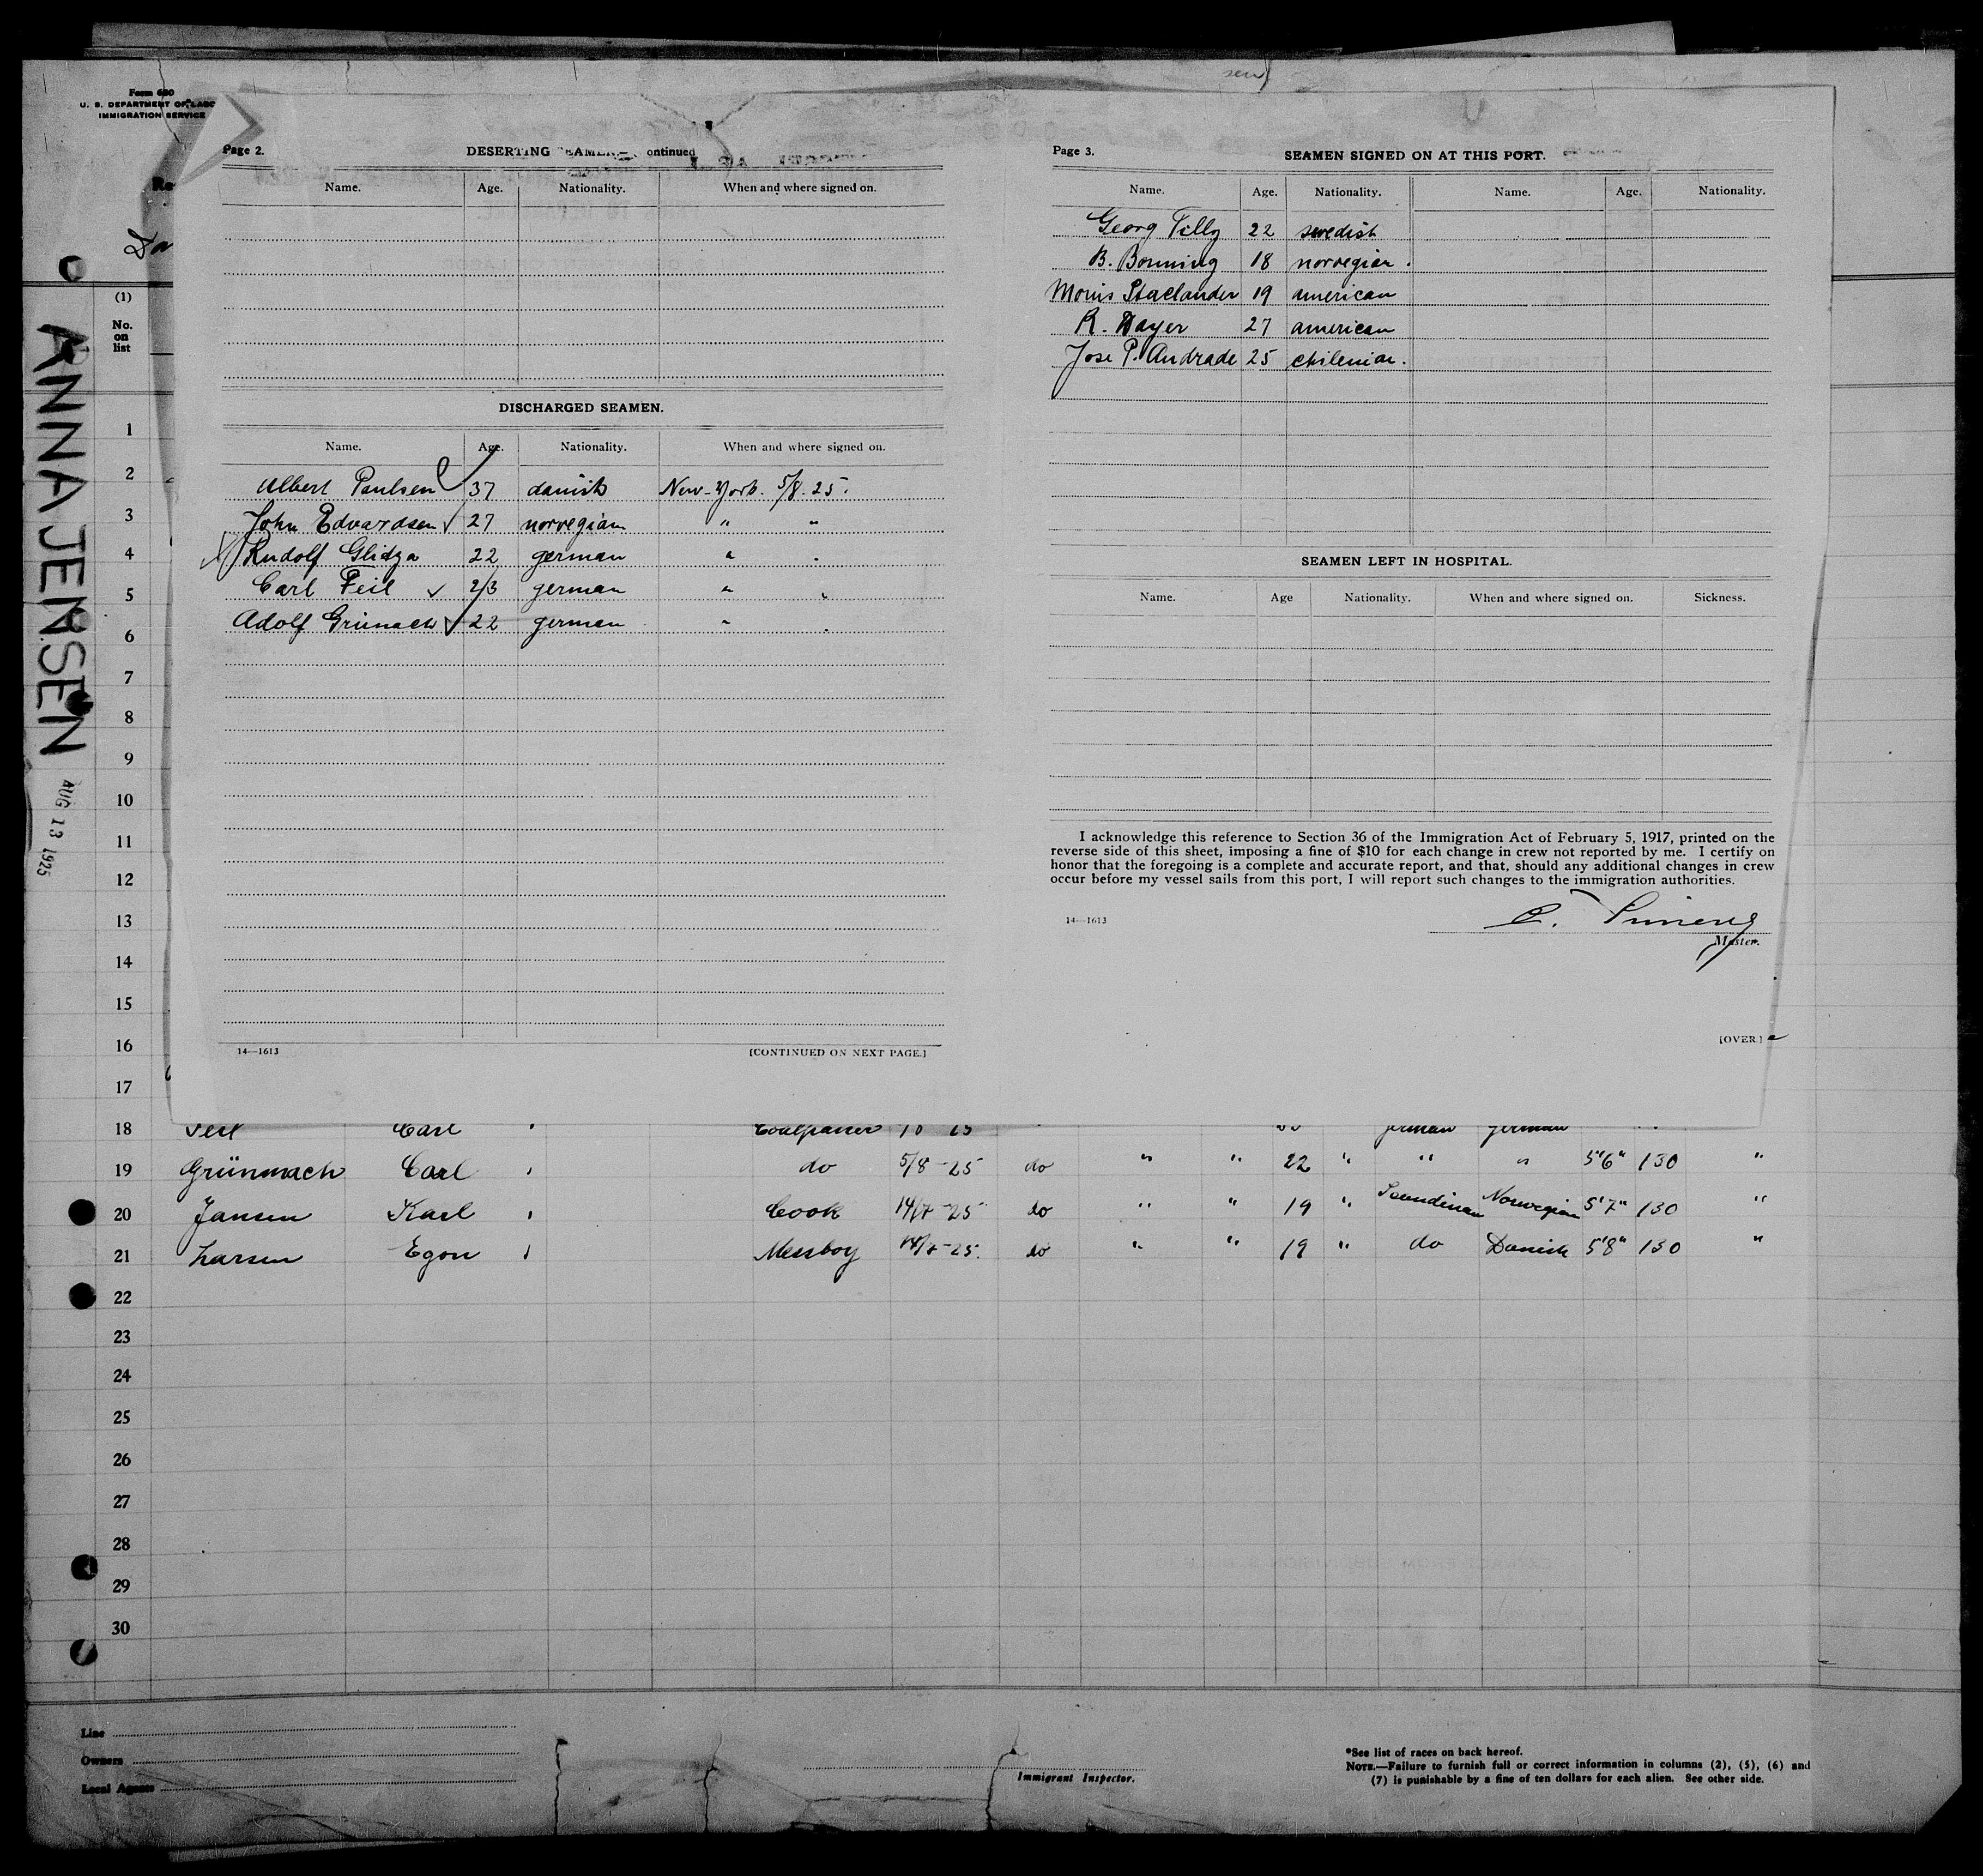 Form 680
U. S. DEPARTMENT OF LABO
IMMIGRATION SERVICE
ANNA JENSEN
AUG 13 1925
(1)
No.
on
list
1
2
3
4
5
6
7
8
9
10
11
12
13
14
15
16
17
Page 2.
DESERTING SEAMEN—continued
Name. Age. Nationality. When and where signed on.
DISCHARGED SEAMEN.
Name. Age. Nationality. When and where signed on.
Albert Paulsen 37 danish New-York. 5/8.25.
John Edvardsen 27 norvegian " "
Rudolf Glidza 22 german " "
Carl Feil 23 german " "
Adolf Grünach 22 german " "
14—1613 [CONTINUED ON NEXT PAGE.]
Page 3.
SEAMEN SIGNED ON AT THIS PORT.
Name. Age. Nationality. Name. Age. Nationality.
Georg Tilly 22 swedish
B. Bonning 18 norvegian.
Morris Staelander 19 american
R. Dayer 27 american
Jose P. Andrade 25 chilenian.
SEAMEN LEFT IN HOSPITAL.
Name. Age Nationality. When and where signed on. Sickness.
I acknowledge this reference to Section 36 of the Immigration Act of February 5, 1917, printed on the
reverse side of this sheet, imposing a fine of $10 for each change in crew not reported by me. I certify on
honor that the foregoing is a complete and accurate report, and that, should any additional changes in crew
occur before my vessel sails from this port, I will report such changes to the immigration authorities.
14—1613
Master.
[OVER.]
18 Feil Carl Coalpasser german german
19 Grünmach Carl do 5/8-25 do " " 22 " " " 5'6" 130 "
20 Jansen Karl Cook 14/7-25 do " " 19 " Scandinav Norwegian 5'7" 130 "
21 Larsen Egon Messboy 14/7-25. do " " 19 " do Danish 5'8" 130 "
22
23
24
25
26
27
28
29
30
Line
Owners
Local Agents
Immigrant Inspector.
*See list of races on back hereof.
NOTE.—Failure to furnish full or correct information in columns (2), (5), (6) and
(7) is punishable by a fine of ten dollars for each alien. See other side.